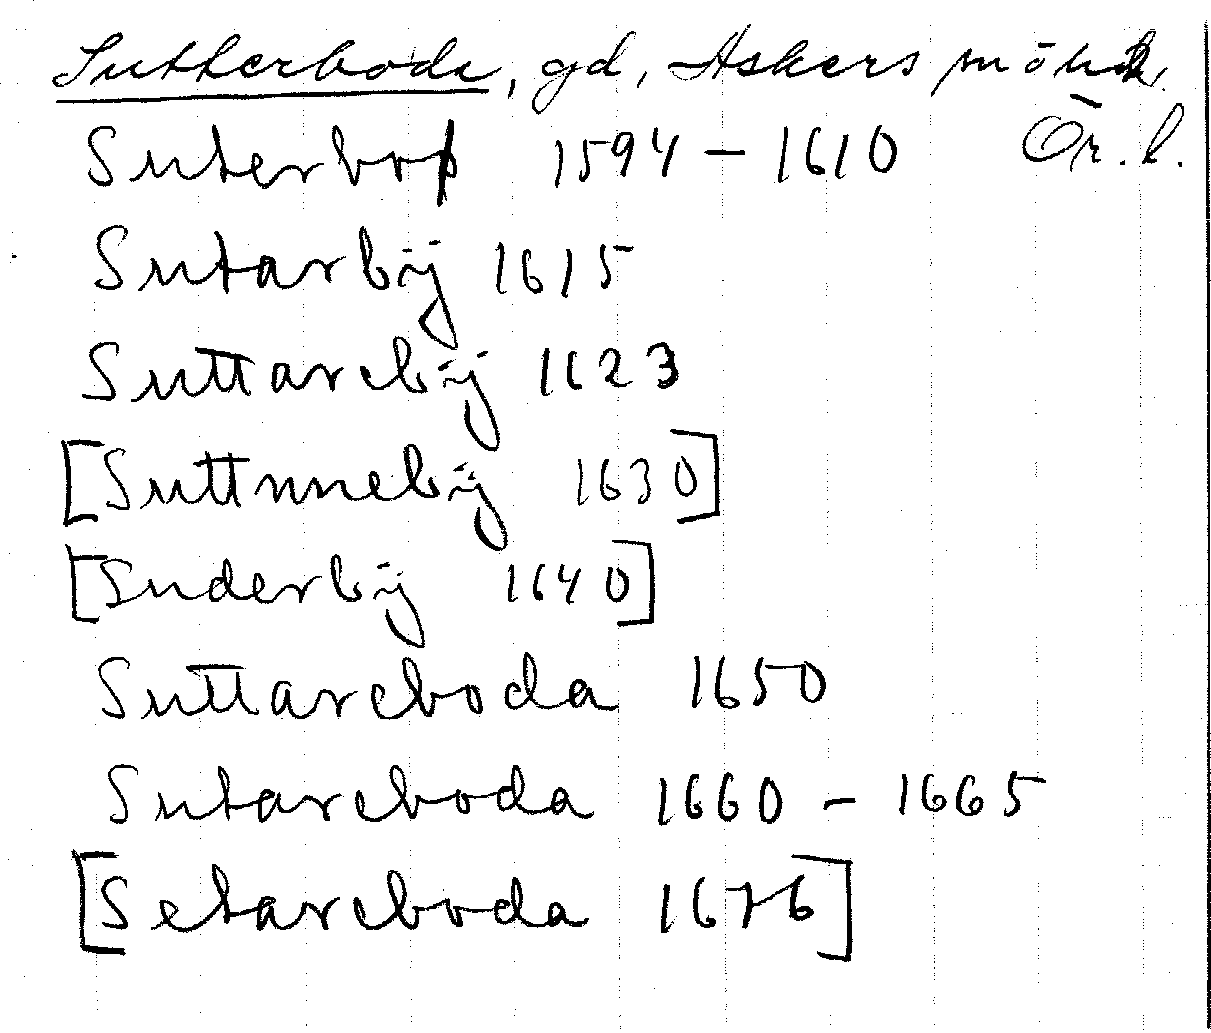 Sutterboda, gd, Askers sn ö hd,
Ör. l.
Suterbo 1594 – 1610
Sutarbij 1615
Suttarebij 1623
[Suttnnebij 1630]
[Suderbij 1640]
Suttareboda 1650
Sutareboda 1660 – 1665
[Setareboda 1676]